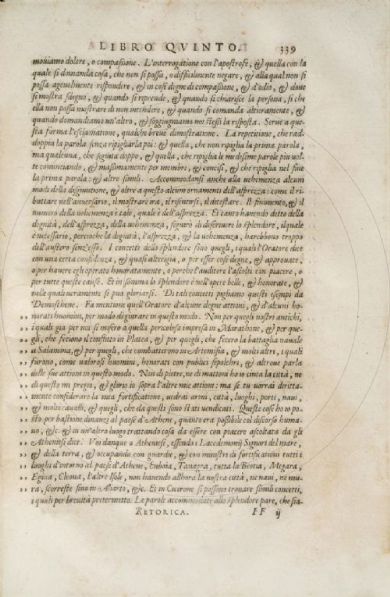 LIBRO QVINTO. 339
mouiamo dolore, o compassione. L'interrogatione con l'apostrofe, & quella con la
quale si domanda cosa, che non si possa, o difficilmente negare, & alla qual non si
possa ageuolmente rispondere, & in cosi degne di compassione, & d'odio, & doue
si mostra sdegno, & quando si riprende, & quando si chiarisce la persona, si che
ella non possa mostrare di non intendere, & quando si comanda alteramente, &
quando domandiamo un'altro, & soggiungiamo noi stessi la risposta. Serue a que-
sta forma l'esclamatione, qualche breue dimostratione. La repetitione, che rad-
doppia la parola senza ripigliarla poi: & quella, che non ripiglia la prima parola,
ma qualcuna, che seguita doppo, & quella, che ripiglia le medesime parole piu uol-
te cominciando, & massimamente per membri, & concisi, & che ripiglia nel fine
la prima parola: & altre simili. Accommodansi anche alla uehemenza alcuni
modi della disgiuntione, & oltre a questo alcuni ornamenti dell'asprezza: come il ri-
battere nell'auersario, il mostrare ira, il risentirsi, il detestare. Il finimento, & il
numero della uehemenza è tale, quale è dell'asprezza. Et tanto hauendo detto della
dignità, dell'asprezza, della uehemenza, seguirò di discorrere lo splendore, il quale
è necessario, percioche la dignità, l'asprezza, & la uehemenza, harebbono troppo
dell'austero senz'esso. I concetti dello splendore sono quegli, i quali l'Oratore dice
con una certa confidenza, & quasi alteregia, o per esser cose degne, & approuate,
o per hauere egli operato honoratamente, o perche l'auditore l'ascolti con piacere, o
per tutte queste cause. Et in somma lo splendore è nell'opere belle, & honorate, &
nelle quali ueramente si può gloriarsi. Di tali concetti pigliamo questi esempi da
Demosthene. Fa mentione quell'Oratore d'alcune degne attioni, & d'alcuni ho-
norati huomini, per modo d'giurare in questo modo. Non per quegli nostri antichi,
i quali gia per noi si misero a quella pericolosa impresa in Marathone, & per que-
gli, che feciono il conflitto in Platea, & per quegli, che fecero la battaglia nauale
a Salamina, & per quegli, che combatterono in Artemisia, & molti altri, i quali
furono, come ualorosi huomini, honorati con publici sepolchri, & altroue parla
delle sue attioni in questo modo. Non di pietre, ne di mattoni ho io cinta la città, ne
di questo mi pregio, & glorio io sopra l'altre mie attioni: ma se tu uorrai diritta-
mente considerare la mia fortificatione, uedrai armi, città, luoghi, porti, naui,
& molti caualli, & quegli, che da questi sono stati uendicati. Queste cose ho io po-
sto per bastione dinanzi al paese d'Athene, quanto era possibile col discorso huma-
no, &c. & in un'altro luogo trattando cosa da essere con piacere ascoltata da gli
Atheniesi dice. Voi dunque o Atheniesi, essendo i Lacedemonij Signori del mare,
& della terra, & occupando con guardie, & con ministri di fortificationi tutti i
luoghi d'intorno al paese d'Athene, Euboia, Tanagra, tutta la Beotia, Megara,
Egina, Cleona, l'altre Isole, non hauendo allhora la nostra città, ne naui, ne mu-
ra, scorreste sino in Aliarto, &c. Et in Cicerone si possono trouare simili concetti,
i quali per breuità pretermetto. Le parole accommodate allo splendore pare, che sia-
RETORICA. FF ij